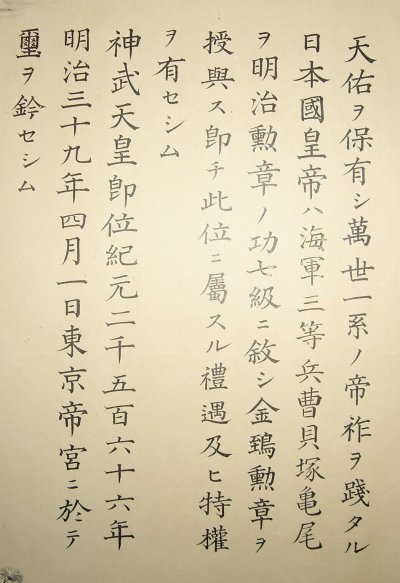 天佑ヲ保有シ萬世一系ノ帝祚ヲ踐タル
日本國皇帝ハ海軍三等兵曹貝塚亀尾
ヲ明治勲章ノ功七級ニ敘シ金鵄勲章ヲ
授與ス卽チ此位ニ屬スル禮遇及ヒ特權
ヲ有セシム
神武天皇卽位紀元二千五百六十六年
明治三十九年四月一日東京帝宮ニ於テ
璽ヲ鈐セシム